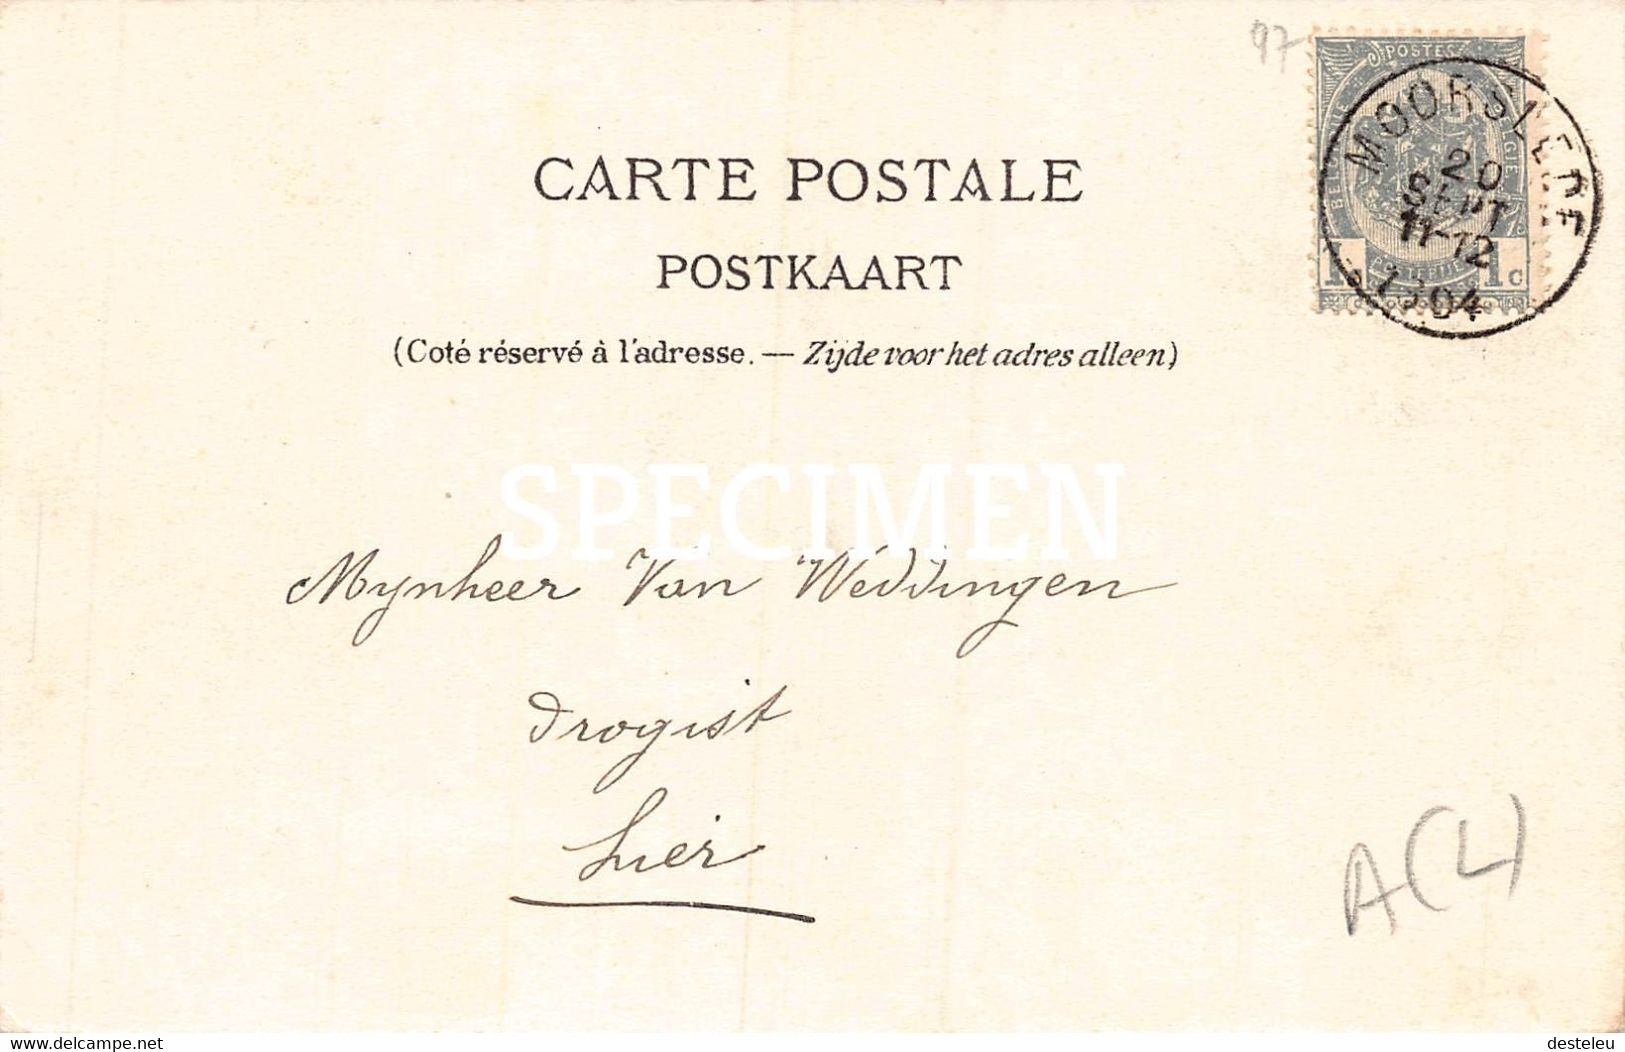 97
POSTES
BELGIQUE BELGIE
1 POSTERIJEN 1c
MOORSLEDE
20
SEPT
11-12
1904
CARTE POSTALE
POSTKAART
(Coté réservé à l'adresse. — Zijde voor het adres alleen)
SPECIMEN
Mynheer Van Weddingen
Drogist
Lier
A(L)
www.delcampe.net
desteleu